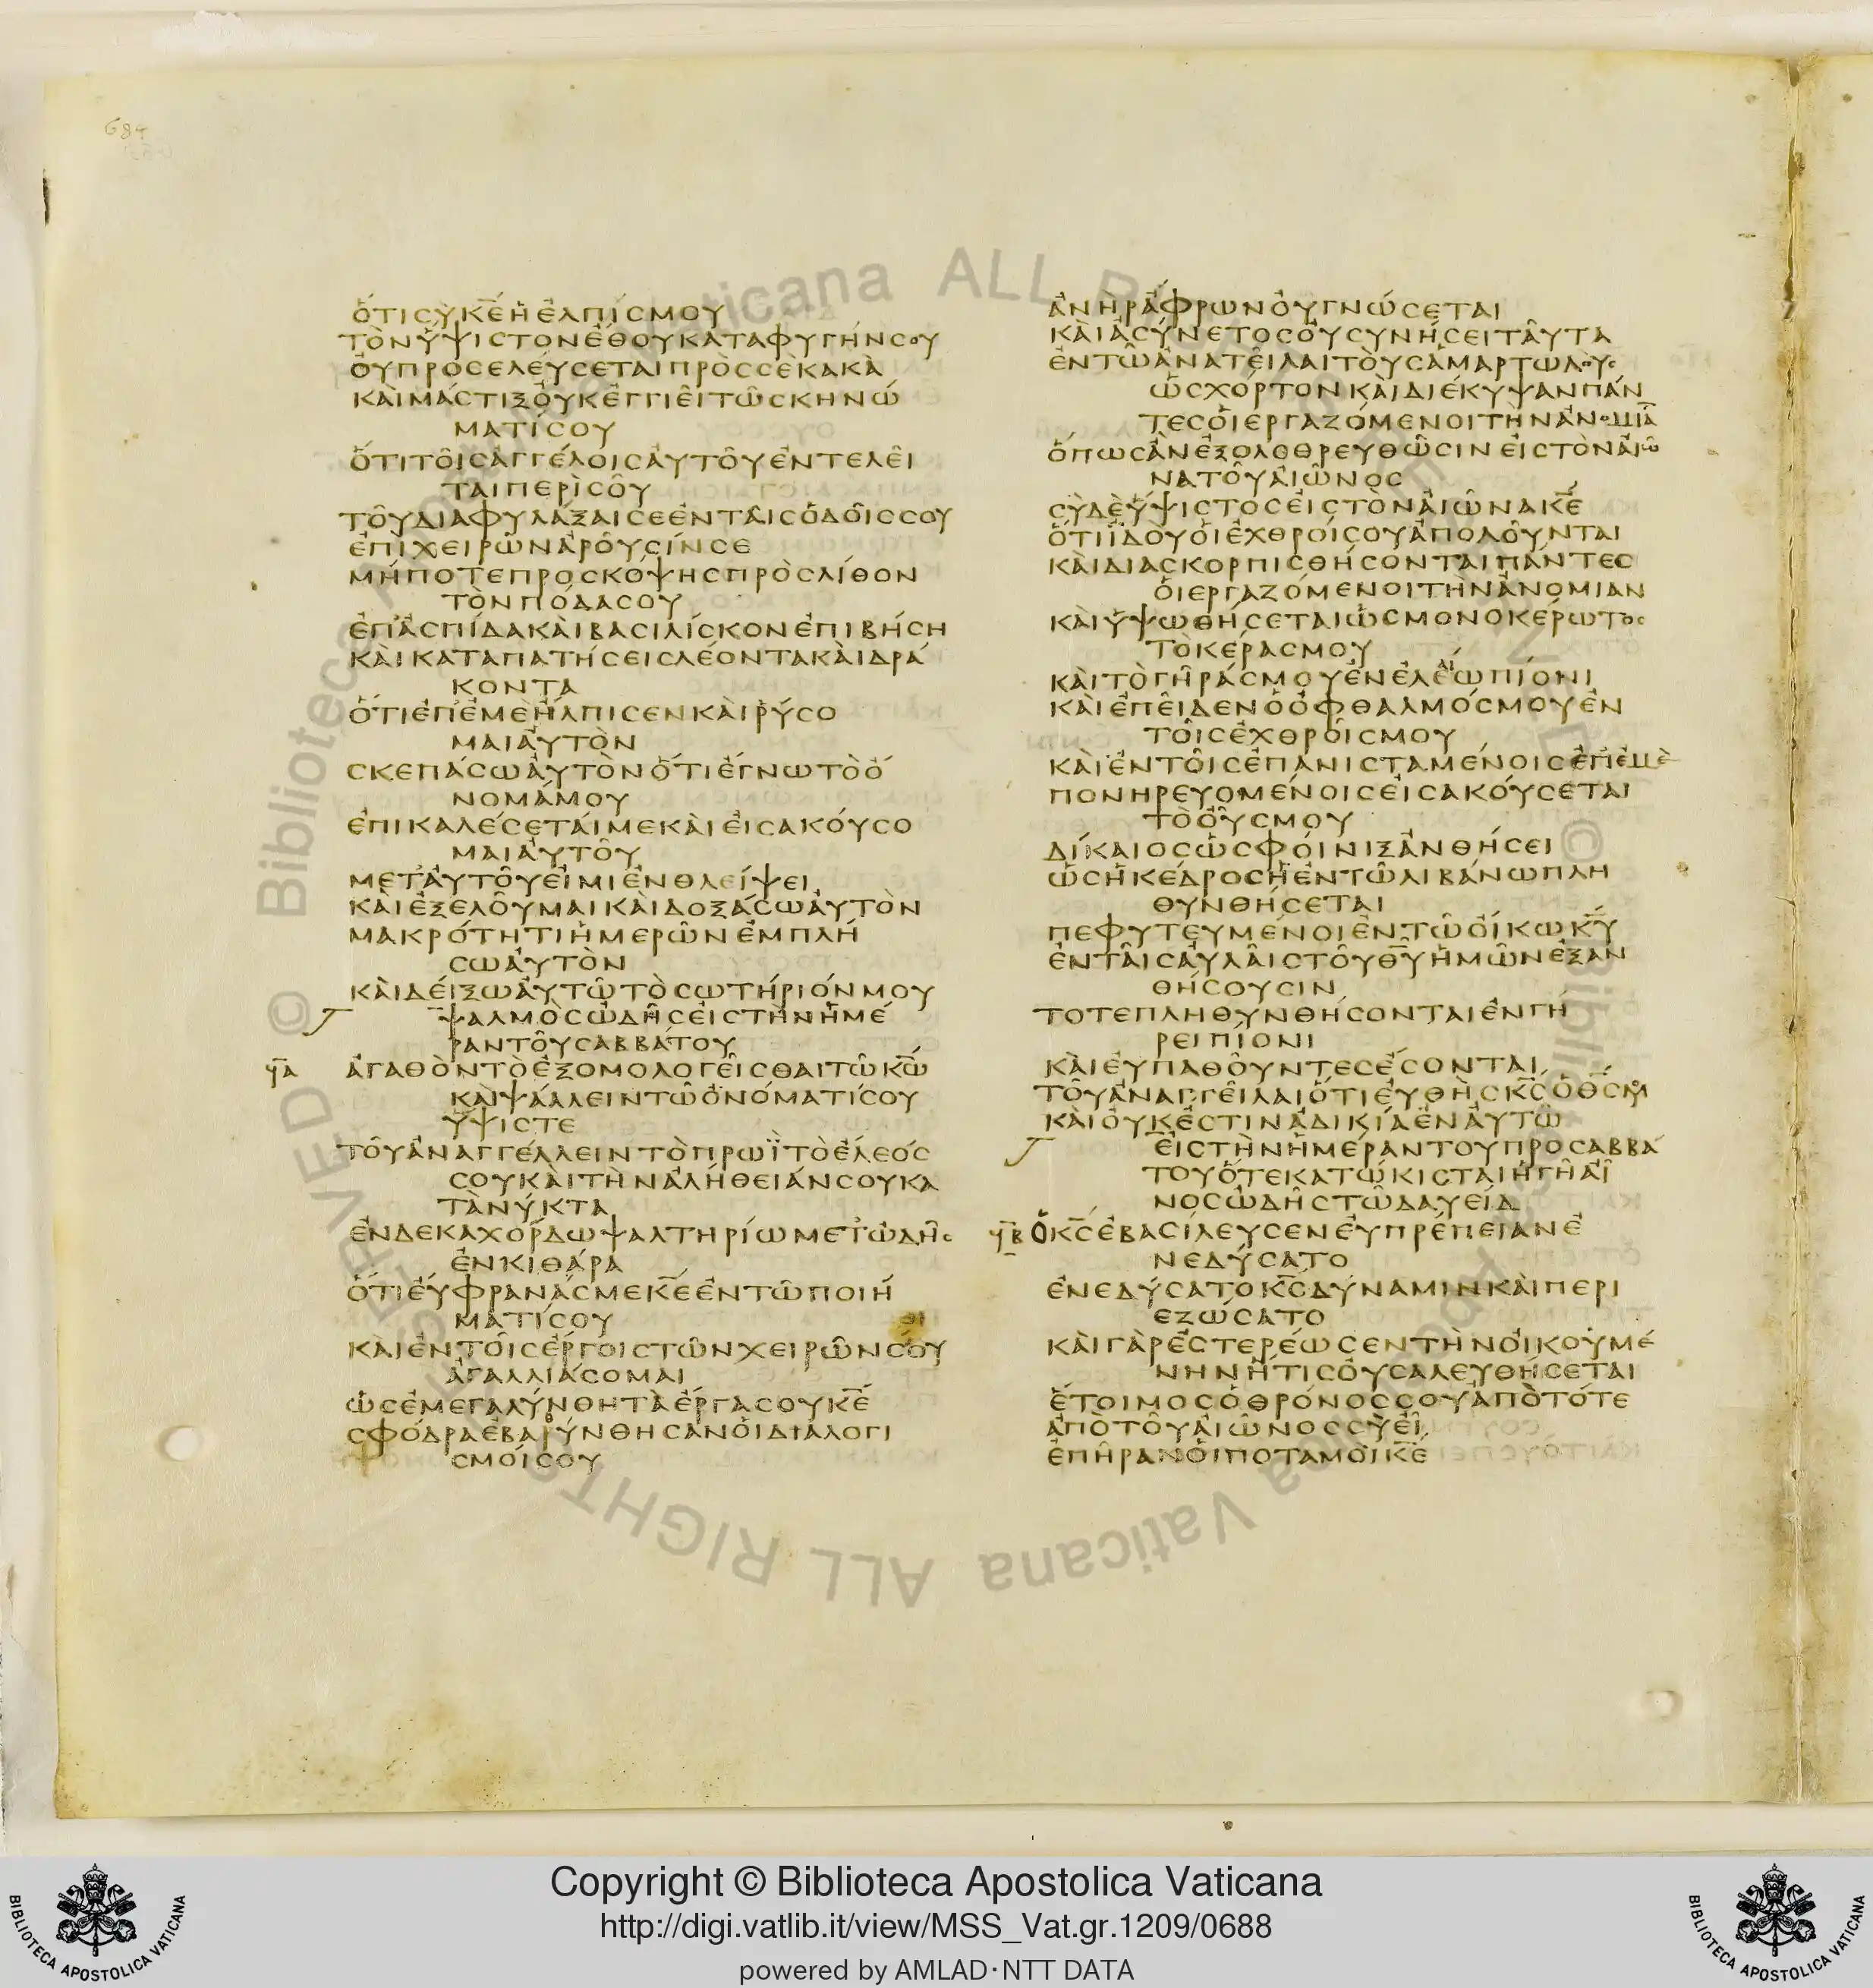 684
ὅτι σὺ κ̅ε̅ ἡ ἐλπίς μου
τὸν ὕψιστον ἔθου καταφυγήν σου
οὐ προσελεύσεται πρὸς σὲ κακὰ
καὶ μάστιξ οὐκ ἐγγιεῖ τῶ σκηνώ
ματί σου
ὅτι τοῖς ἀγγέλοις αὐτοῦ ἐντελεῖ
ται περὶ σοῦ
τοῦ διαφυλάξαι σε ἐν ταῖς ὁδοῖς σου
ἐπὶ χειρῶν ἀροῦσίν σε
μήποτε προσκόψης πρὸς λίθον
τὸν πόδα σου
ἐπ' ἀσπίδα καὶ βασιλίσκον ἐπιβήση
καὶ καταπατήσεις λέοντα καὶ δρά
κοντα
ὅτι ἐπ' ἐμὲ ἤλπισεν καὶ ῥύσο
μαι αὐτὸν
σκεπάσω αὐτὸν ὅτι ἔγνω τὸ ὄ
νομά μου
ἐπικαλέσεταί με καὶ εἰσακούσο
μαι αὐτοῦ
μετ' αὐτοῦ εἰμι ἐν θλείψει
καὶ ἐξελοῦμαι καὶ δοξάσω αὐτὸν
μακρότητι ἡμερῶν ἐμπλή
σω αὐτὸν
καὶ δείξω αὐτῶ τὸ σωτήριόν μου
ψαλμὸς ὠδῆς εἰς τὴν ἡμέ
ραν τοῦ σαββάτου
ϟ̅α ἀγαθὸν τὸ ἐξομολογεῖσθαι τῶ κ̅ω̅
καὶ ψάλλειν τῶ ὀνόματί σου
ὕψιστε
τοῦ ἀναγγέλλειν τὸ πρωῒ τὸ ἔλεός
σου καὶ τὴν ἀλήθειάν σου κα
τὰ νύκτα
ἐν δεκαχόρδω ψαλτηρίω μετ' ὠδῆς
ἐν κιθάρα
ὅτι εὔφρανάς με κ̅ε̅ ἐν τῶ ποιή
ματί σου
καὶ ἐν τοῖς ἔργοις τῶν χειρῶν σου
ἀγαλλιάσομαι
ὡς ἐμεγαλύνθη τὰ ἔργα σου κ̅ε̅
σφόδρα ἐβαρύνθησαν οἱ διαλογι
σμοί σου
ἀνὴρ ἄφρων οὐ γνώσεται
καὶ ἀσύνετος οὐ συνήσει ταῦτα
ἐν τῶ ἀνατεῖλαι τοὺς ἁμαρτωλοὺς
ὡς χόρτον καὶ διέκυψαν πάν
τες οἱ ἐργαζόμενοι τὴν ἀνομία̅
ὅπως ἂν ἐξολοθρευθῶσιν εἰς τὸν αἰῶ
να τοῦ αἰῶνος
σὺ δὲ ὕψιστος εἰς τὸν αἰῶνα κ̅ε̅
ὅτι ἰδοὺ οἱ ἐχθροί σου ἀπολοῦνται
καὶ διασκορπισθήσονται πάντες
οἱ ἐργαζόμενοι τὴν ἀνομίαν
καὶ ὑψωθήσεται ὡς μονοκέρωτος
τὸ κέρας μου
καὶ τὸ γῆράς μου ἐν ἐλέω πίονι
καὶ ἐπεῖδεν ὁ ὀφθαλμός μου ἐν
τοῖς ἐχθροῖς μου
καὶ ἐν τοῖς ἐπανισταμένοις ἐπ' ἐμὲ
πονηρευομένοις εἰσακούσεται
τὸ οὖς μου
δίκαιος ὡς φοῖνιξ ἀνθήσει
ὡσὴ κέδρος ἡ ἐν τῶ λιβάνω πλη
θυνθήσεται
πεφυτευμένοι ἐν τῶ οἴκω κ̅υ̅
ἐν ταῖς αὐλαῖς τοῦ θ̅υ̅ ἡμῶν ἐξαν
θήσουσιν
τότε πληθυνθήσονται ἐν γή
ρει πίονι
καὶ εὐπαθοῦντες ἔσονται
τοῦ ἀναγγεῖλαι ὅτι εὐθὴς κ̅ς̅ ὁ θ̅ς̅ μου
καὶ οὐκ ἔστιν ἀδικία ἐν αὐτῶ
εἰς τὴν ἡμέραν τοῦ προσαββά
του ὅτε κατώκισται ἡ γῆ αἶ
νος ὠδῆς τῶ δαυείδ
ϟ̅β ὁ κ̅ς̅ ἐβασίλευσεν εὐπρέπειαν ἐ
νεδύσατο
ἐνεδύσατο κ̅ς̅ δύναμιν καὶ περι
εζώσατο
καὶ γὰρ ἐστερέωσεν τὴν οἰκουμέ
νην ἥτις οὐ σαλευθήσεται
ἕτοιμος ὁ θρόνος σου ἀπὸ τότε
ἀπὸ τοῦ αἰῶνος σὺ εἶ
ἐπῆραν οἱ ποταμοὶ κ̅ε̅
Copyright © Biblioteca Apostolica Vaticana
http://digi.vatlib.it/view/MSS_Vat.gr.1209/0688
powered by AMLAD·NTT DATA
BIBLIOTECA APOSTOLICA VATICANA
BIBLIOTECA APOSTOLICA VATICANA